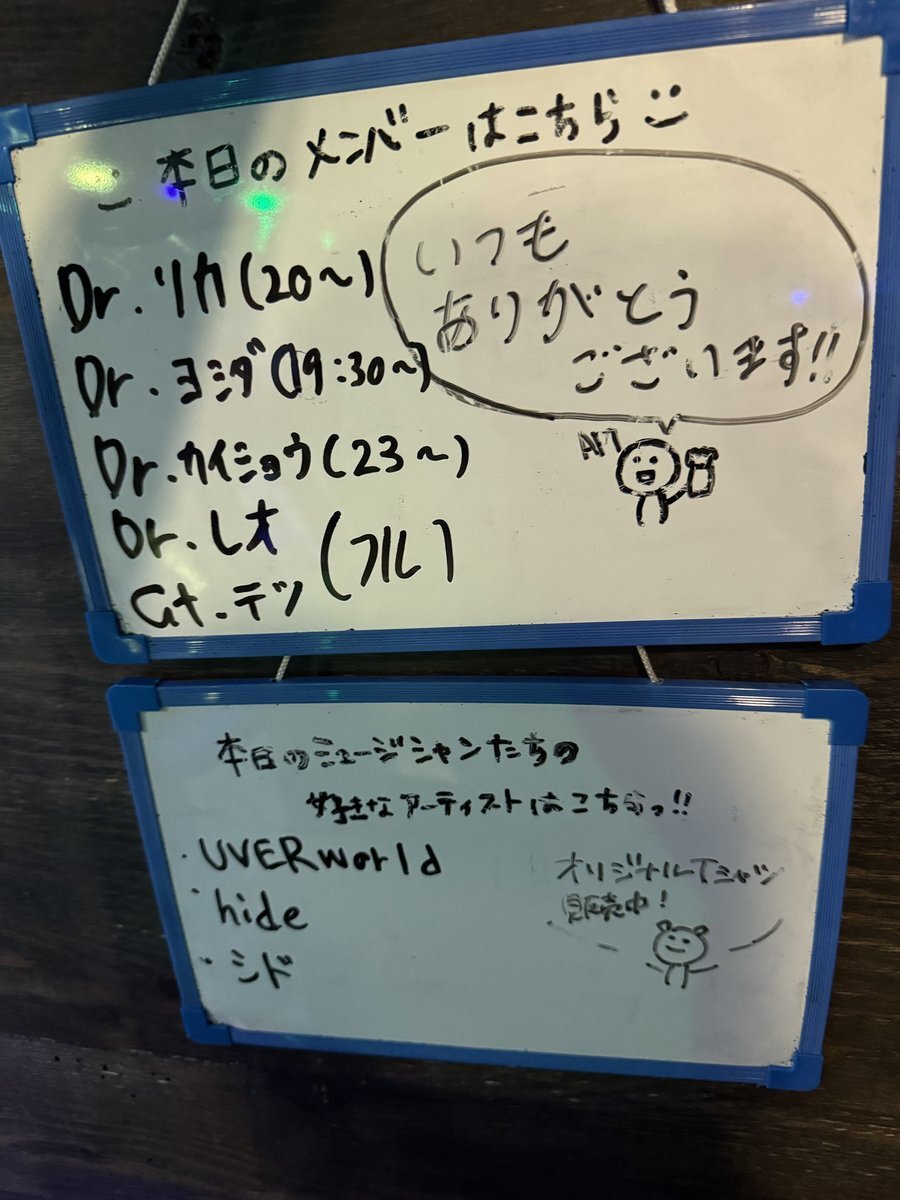 本日のメンバーはこちら
いつも
ありがとう
ございます!!
Dr.リカ(20~)
Dr.ヨシダ(19:30~)
Dr.カイショウ(23~)
Dr.レオ
Gt.テツ
(フル)
本日のミュージシャンたちの
好きなアーティストはこちらっ!!
・UVERworld
・hide
・シド
オリジナルTシャツ
販売中!